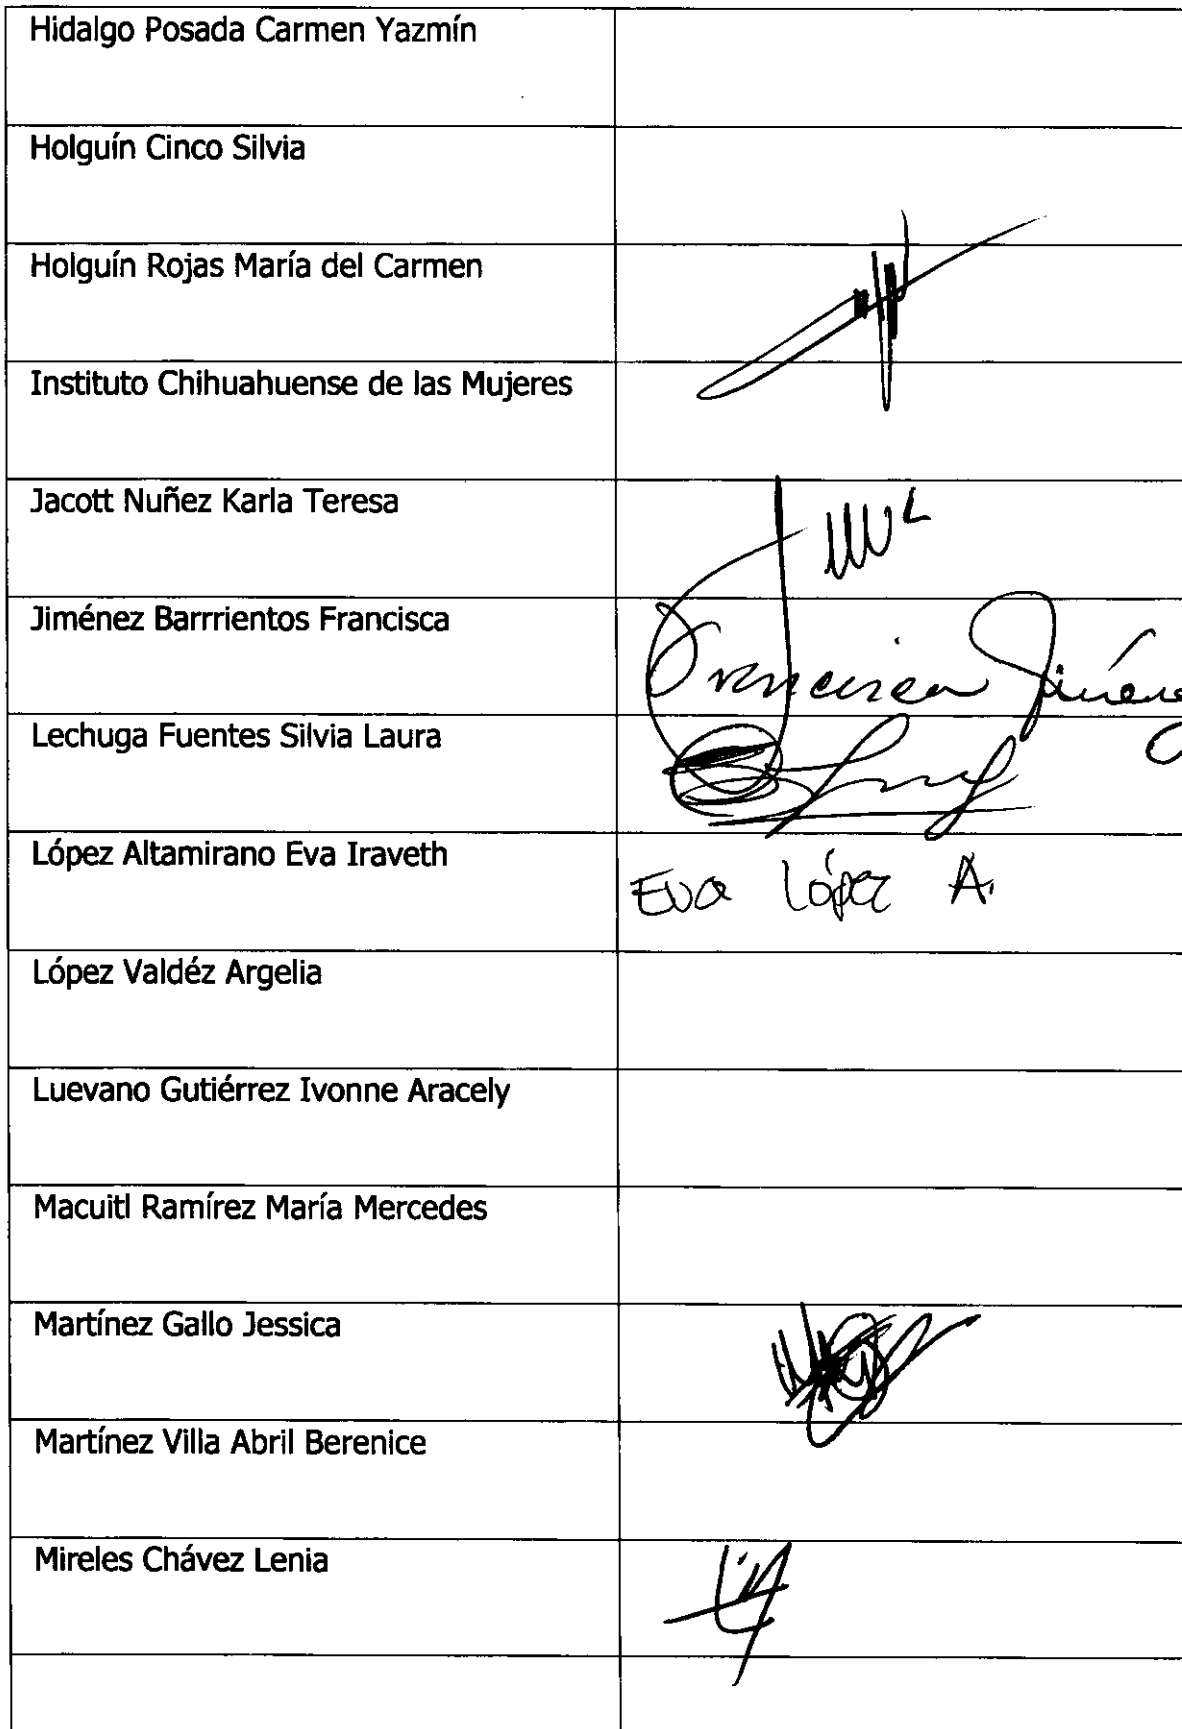 Hidalgo Posada Carmen Yazmín
Holguín Cinco Silvia
Holguín Rojas María del Carmen
Instituto Chihuahuense de las Mujeres
Jacott Nuñez Karla Teresa
Jiménez Barrrientos Francisca
Francisca Jiménez
Lechuga Fuentes Silvia Laura
López Altamirano Eva Iraveth
Eva López A.
López Valdéz Argelia
Luevano Gutiérrez Ivonne Aracely
Macuitl Ramírez María Mercedes
Martínez Gallo Jessica
Martínez Villa Abril Berenice
Mireles Chávez Lenia